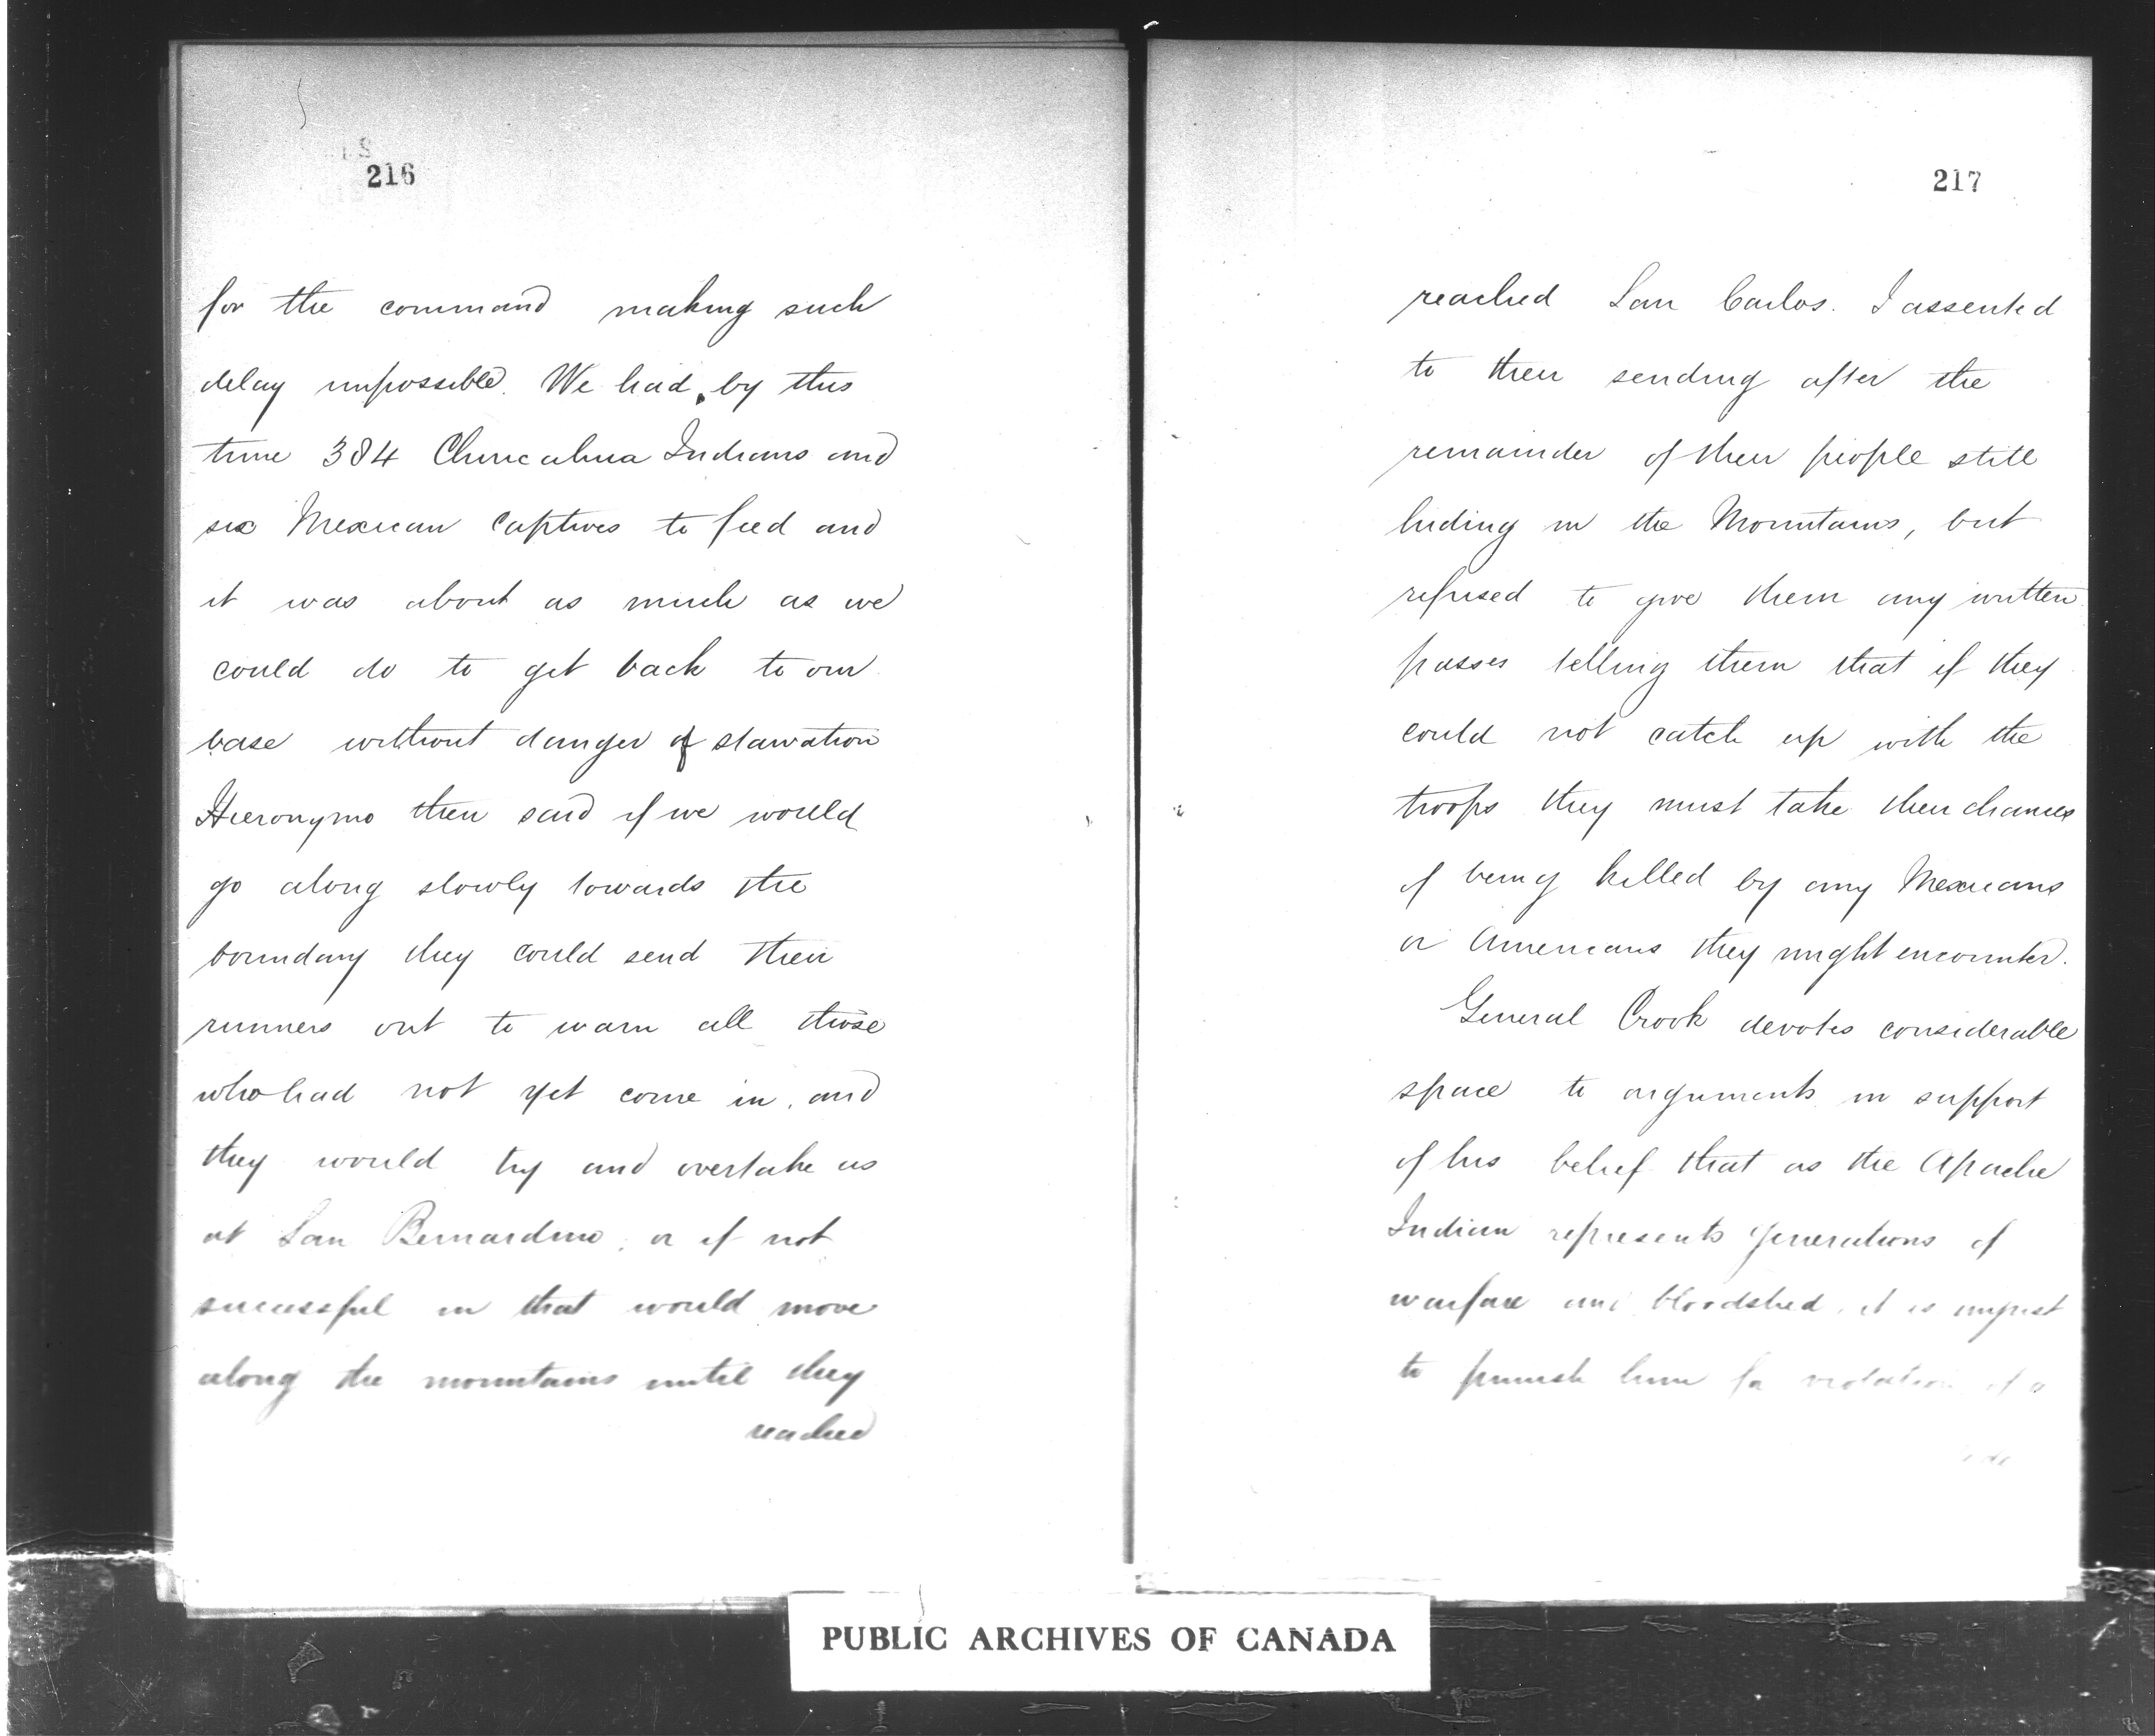 216
for the command making such
delay impossible. We had, by this
time 384 Chiricahua Indians and
six Mexican Captives to feed and
it was about as much as we
could do to get back to our
base without danger of starvation
Hieronymo then said if we would
go along slowly towards the
boundary they could send their
runners out to warn all those
who had not yet come in, and
they would try and overtake us
at San Bernardino, or if not
successful in that would move
along the mountains until they
reached
217
reached San Carlos. I assented
to their sending after the
remainder of their people still
hiding in the Mountains, but
refused to give them any written
passes telling them that if they
could not catch up with the
troops they must take their chances
of being killed by any Mexicans
or Americans they might encounter.
General Crook devotes considerable
space to arguments in support
of his belief that as the Apache
Indian represents generations of
warfare and bloodshed, it is unjust
to punish him for violation of a
PUBLIC ARCHIVES OF CANADA